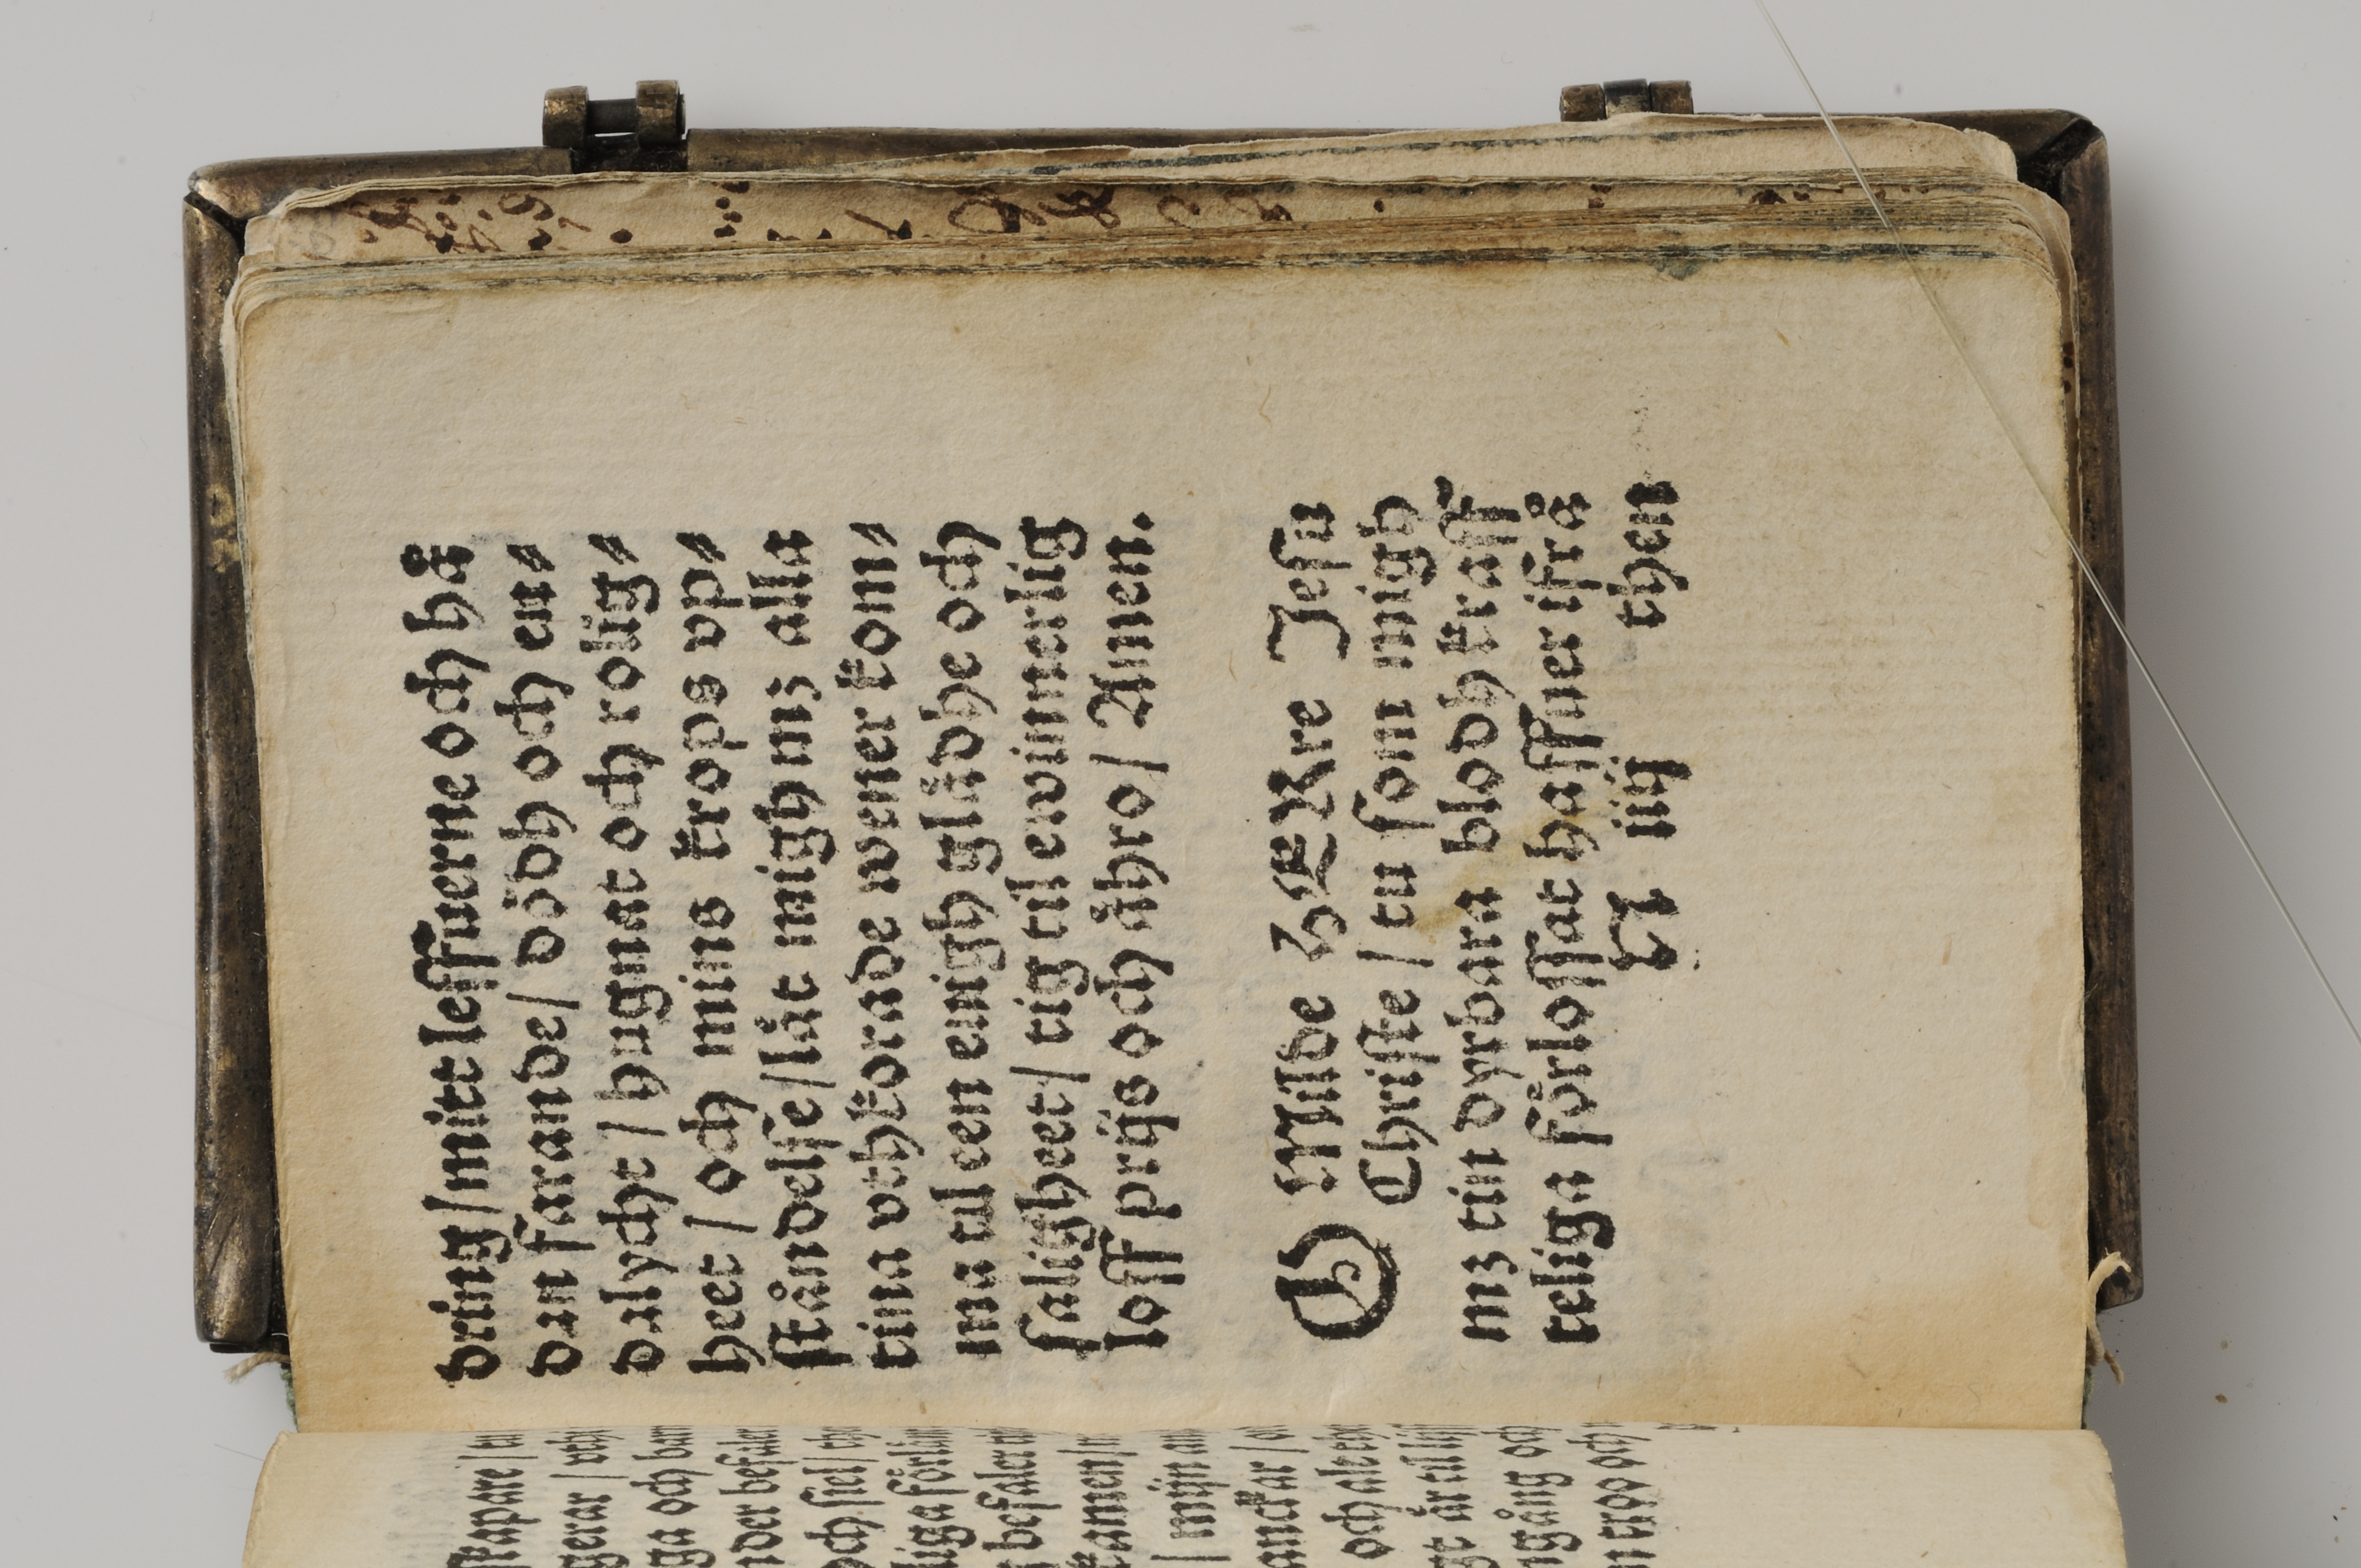 dring/mitt leffuerne och hå
dan farande/ dödh och en⸗
dalycht / hugnat och rolig⸗
heet / och mins krops vp⸗
ståndelse/låt migh mz alla
tina vthkorade wener kom⸗
ma til een ewigh glädhe och
saligheet/ tig til ewinnerlig
loff prijs och ähro/ Amen.
O Milde HERre Jesu
Christe / tu som migh
mz tin dyrbara blodh krafft
teliga förlossat haffuer ifrå
iiij then
skapare / tu
gerar / vthi
ga och bar
nder befaler
och siel / thy
liga förlän
befaler
tamen/
/ mijn an
anckar /
och alt thy
gt är til lij
ngång och
n troo och